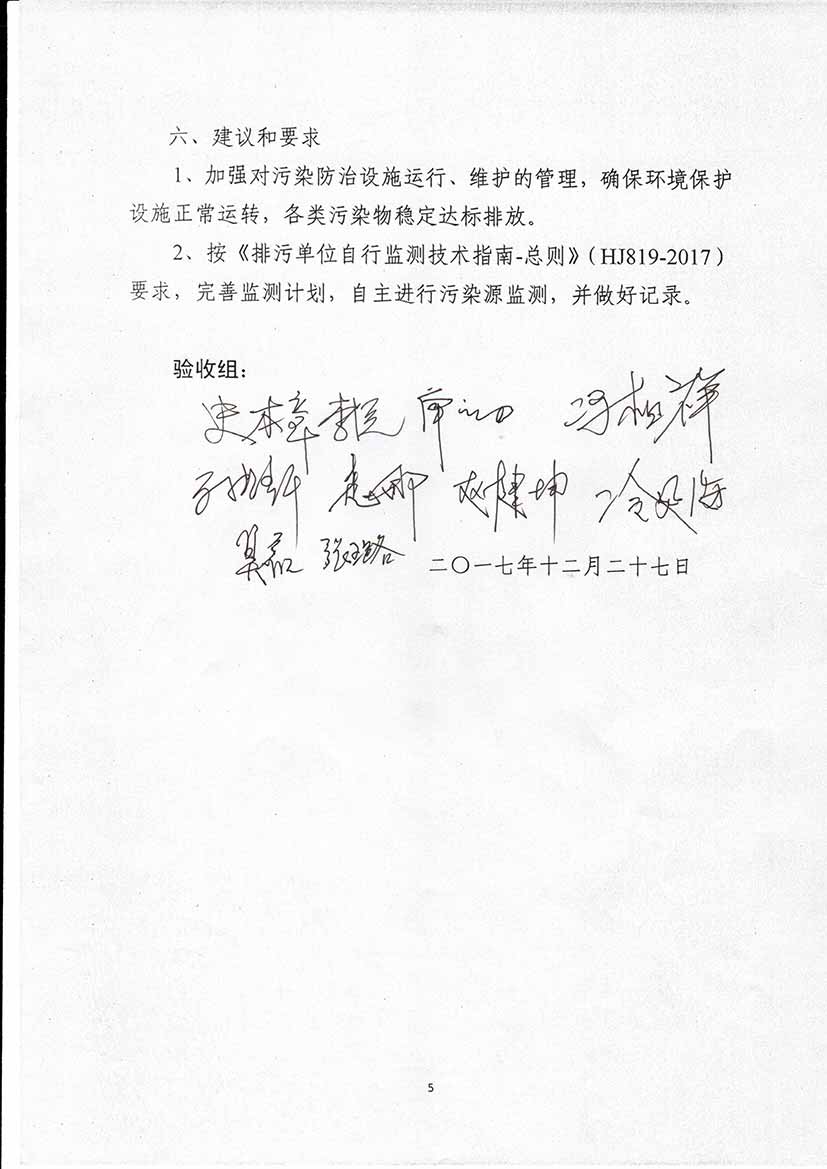 六、建议和要求
1、加强对污染防治设施运行、维护的管理，确保环境保护
设施正常运转，各类污染物稳定达标排放。
2、按《排污单位自行监测技术指南-总则》（HJ819-2017）
要求，完善监测计划，自主进行污染源监测，并做好记录。
验收组：
史本章 冯相祥
赵建坤
吴磊 张璐 二〇一七年十二月二十七日
5